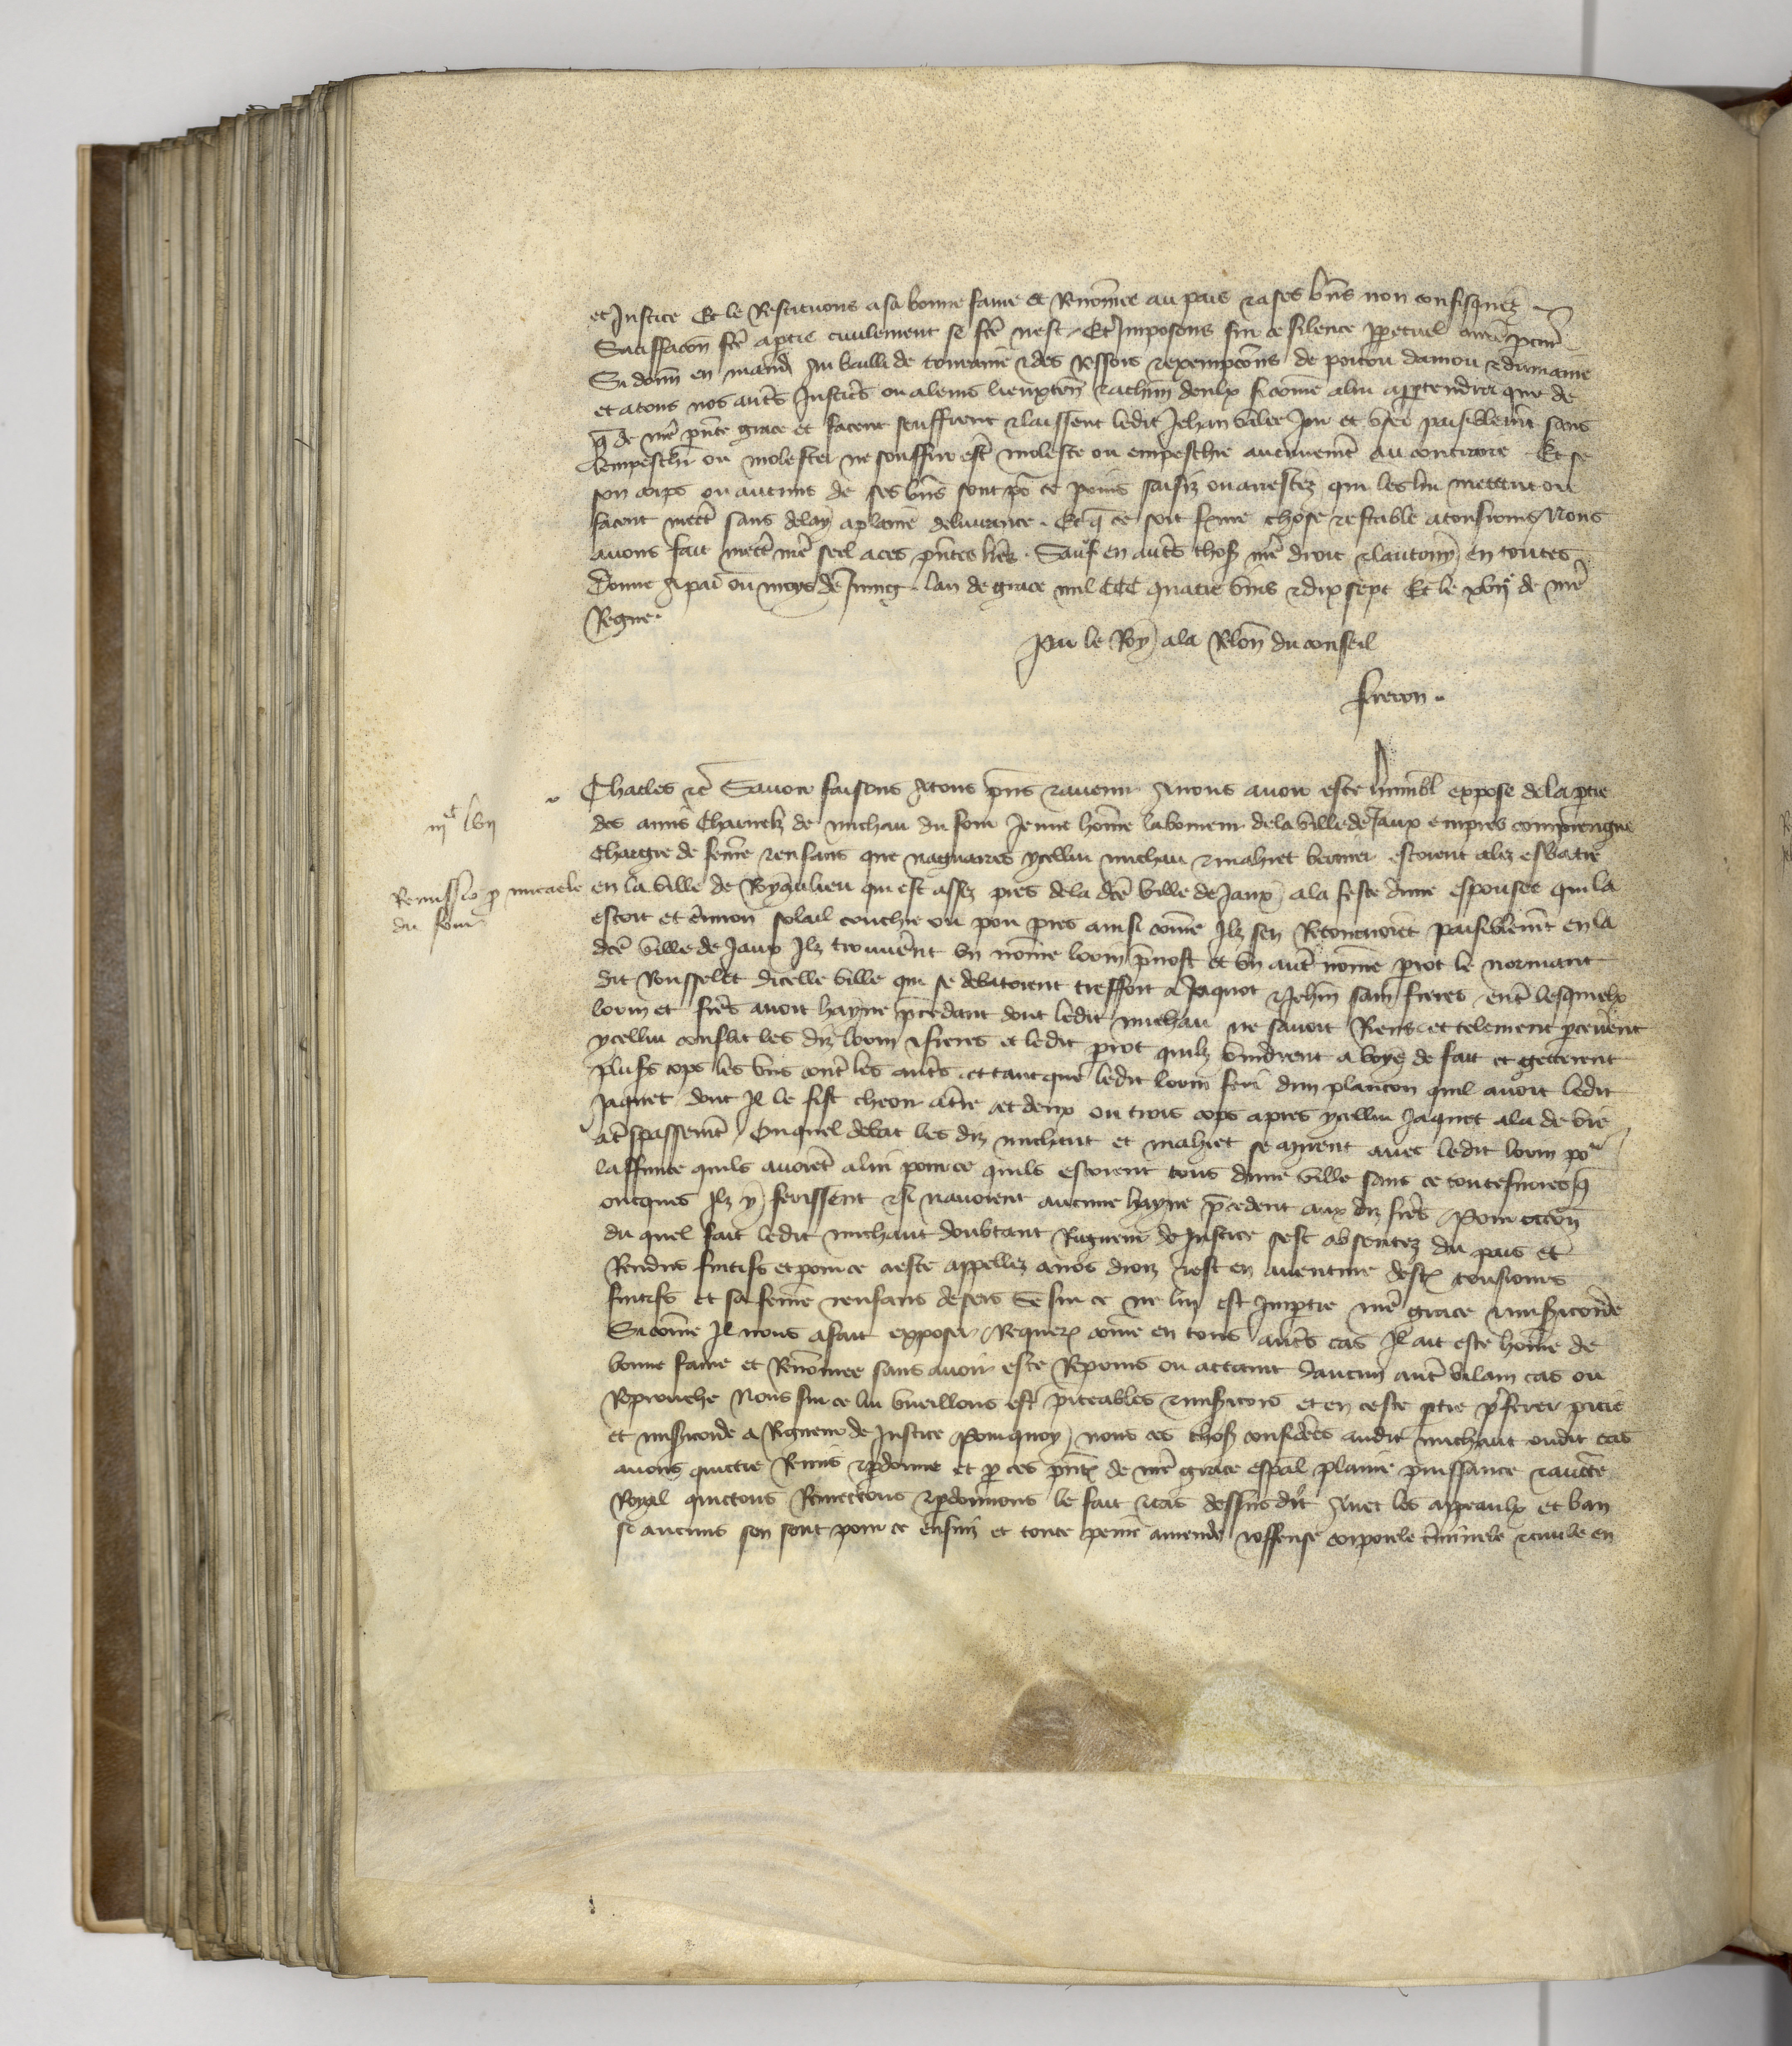 et Justice Et le Restituons a sa bonne fame et Renõmee au pais ⁊ a ses bñs non confisquez
Satisfacõn fcẽ a ptie civilement se fcẽ nest. Et Imposons sur ce silence ppetuel a nrẽ pcur̃
Si donñ en mand Au bailli de touraine ⁊ des Ressors ⁊ exempcõns de poitou danjou ⁊ du maine
et a tous nos autr̃s Justic̃s ou a leurs lieuxteñ ⁊ a chũn deulx si cõme a lui appartendra que de
q̃ de nrẽ pñte grace et facent seuffrent ⁊ laissent ledit Jehan Joir et user paisiblemẽt sans
lempeschr̃ ou molester ne souffrir estr̃ moleste ou empeschie aucunemẽt au contraire Et se
son corps ou aucuns de ses bñs sont po ce prins saisiz ou arrestez qui les lui mettent ou
facent mectr̃ sans delay a plaine delivrance. Et q̃ ce soit ferme chose ⁊ estable a tousiours Nous
avons fait mectr̃ nrẽ seel a ces pñtes lrẽs. Sauf en autr̃s chos nrẽ droit ⁊ lautruy en toutes
Donne A paris ou moys de Juing lan de grace mil CCC quatre vins ⁊ dix sept Et le xvijᵉ de nrẽ
Regne.
Par le Roy a la Relon du conseil
Freron.
Charles ⁊c̃ Savoir faisons A tous pñs ⁊ avenir A nous avoir este humbl expose de la ptie
iijᶜ lvij
des amis charnelz de michau du four Jeune hõme laboureur de la ville de Jaux empres compiengne
chargie de femẽ ⁊ enfans que naguaires ycellui michau ⁊ mahiet estoient alez esbatre
Remissio p micaele
du four
en la ville de Royaulieu qui est assez pres de la dcẽ ville de Jaux a la feste dune espousee qui la
estoit et environ soleil couchie ou pou pres ainsi cõme Ilz sen Retournoiẽt paisiblemẽt en la
dcẽ ville de Jaux Ilz trouverẽt un nõme lorin prevost et un autr̃ nõme perot le normant
dit Rousselet dicelle ville qui se debatoient tresfort a Jaquot ⁊ Jehñ freres entr̃ lesquelx
lorin et frer̃s avoit hayne precedant dont ledit michau ne savoit Riens et telement
ycellui conflit les diz lorin ⁊ freres et ledit perot quilz vindrent a voye de fait et getterent
plusrs cops les uns contr̃ les autr̃s et tant que ledit lorin feri dun plancon quil avoit ledit
Jaquet dont Il le fist cheoir a trẽ et deux ou trois cops apres ycellui Jaquet ala de vie
a trespassemẽt Ouquel debat les diz michaut et mahiet se mirent avec ledit lorin po
laffinite quils avoiẽt a lui pour ce quils estoient tous dune ville sans ce toutesvoies q̃
oncques Ilz y ferissent ⁊ si navoient aucune hayne precedent aux diz frer̃s Pour occoñ
du quel fait ledit michaut doubtant Rigueur de Justice sest absentez du pais et
Rendus fuitifs et pour ce a este appellez a nos droiz ⁊ est en aventure destr̃ tousiours
fuitifs et sa feme ⁊ enfans desers Se sur ce ne lui est Impartie nrẽ grace ⁊ misicorde
Si cõme Il nous a fait exposer Requerx̃ cõme en tous autr̃s cas Il ait este home de
bonne fame et Renõmee sans avoir este Repris ou attaint daucun autr̃ vilain cas ou
Reprouche Nous sur ce lui vueillons estr̃ piteables ⁊ misicors et en ceste ptie prefferer pitie
et misicorde a Rigueur de Justice Pourquoy nous ces chos considerẽs audit michaut oudit cas
avons quictie Remis ⁊ pdonne et p ces pñtx de nrẽ grace espãl plaine puissance ⁊ aucte
Royal quictons Remettons ⁊ pdonnons le fait ⁊ cas dessus dit Avec les appeaulx et ban
se aucuns sen sont pour ce ensuis et toute peine amende ⁊ offense corporele criminele ⁊ civile en